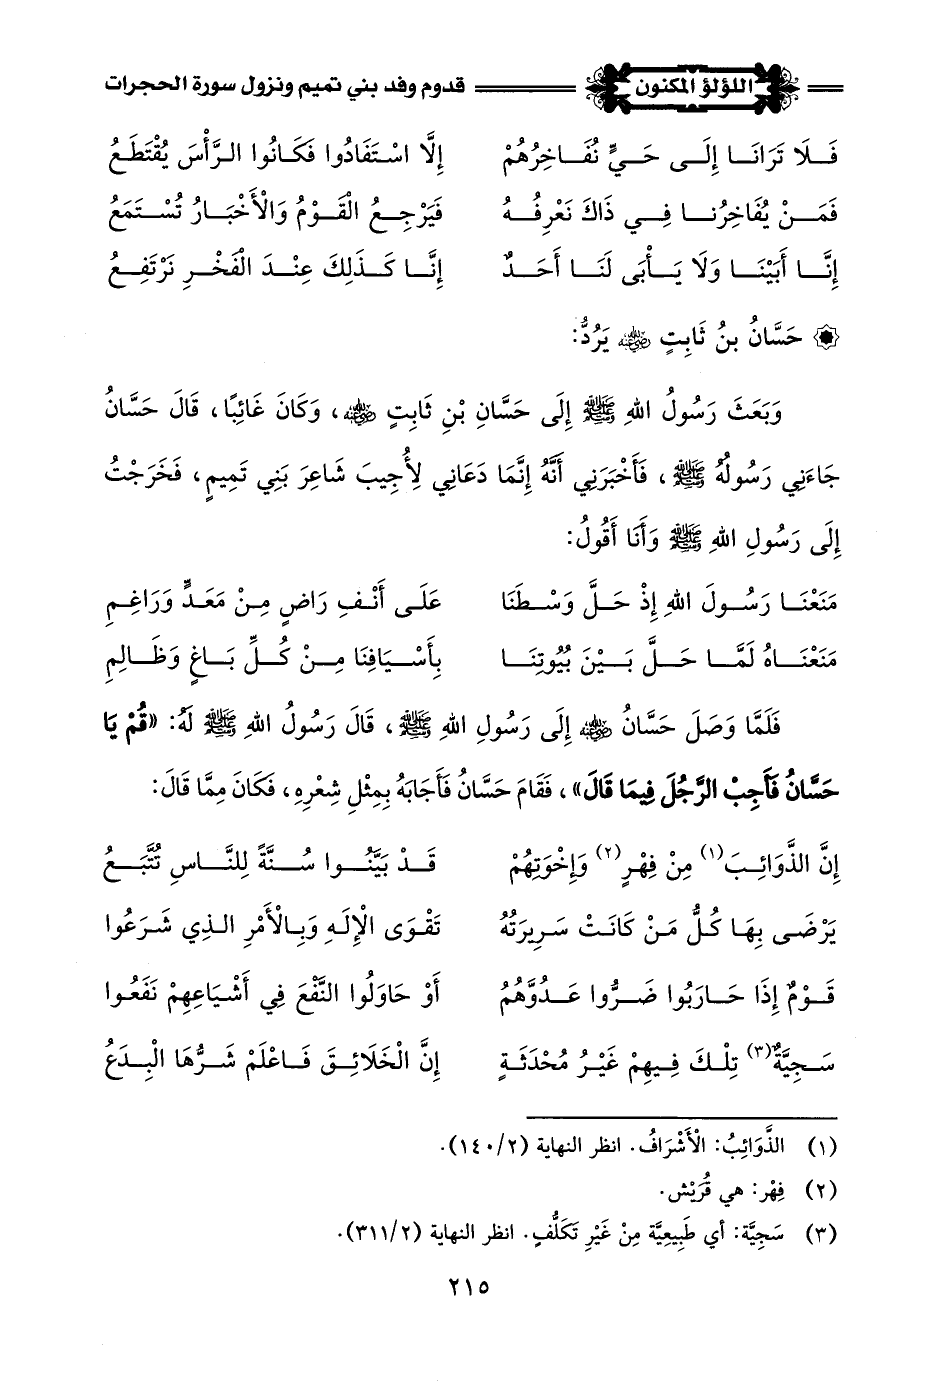 اللؤلؤ المكنون قدوم وفد بني تميم ونزول سورة الحجرات
فَـلَا تَرَانَـا إِلَـى حَـيٍّ نُفَـاخِرُهُمْ إِلَّا اسْـتَفَادُوا فَكَـانُوا الـرَّأْسَ يُقْتَطَـعُ
فَمَـنْ يُفَاخِرُنـا فِـي ذَاكَ نَعْرِفُـهُ فَيَرْجِـعُ الْقَوْمُ وَالْأَخْبَـارُ تُسْـتَمَعُ
إِنَّـا أَبَيْنَـا وَلَا يَـأْبَى لَنَـا أَحَـدٌ إِنَّـا كَـذَلِكَ عِنْـدَ الْفَخْـرِ نَرْتَفِـعُ
۞ حَسَّانُ بنُ ثَابِتٍ رضي الله عنه يَرُدُّ:
وَبَعَثَ رَسُولُ اللهِ ﷺ إِلَى حَسَّانِ بْنِ ثَابِتٍ رضي الله عنه، وَكَانَ غَائِبًا، قَالَ حَسَّانُ
جَاءَنِي رَسُولُهُ ﷺ، فَأَخْبَرَنِي أَنَّهُ إِنَّمَا دَعَانِي لِأُجِيبَ شَاعِرَ بَنِي تَمِيمٍ، فَخَرَجْتُ
إِلَى رَسُولِ اللهِ ﷺ وَأَنَا أَقُولُ:
مَنَعْنَـا رَسُـولَ اللهِ إِذْ حَـلَّ وَسْـطَنَا عَلَـى أَنْـفِ رَاضٍ مِـنْ مَعَـدٍّ وَرَاغِـمِ
مَنَعْنَـاهُ لَمَّـا حَـلَّ بَـيْنَ بُيُوتِنَـا بِأَسْـيَافِنَا مِـنْ كُـلِّ بَـاغٍ وَظَـالِمِ
فَلَمَّا وَصَلَ حَسَّانُ رضي الله عنه إِلَى رَسُولِ اللهِ ﷺ، قَالَ رَسُولُ اللهِ ﷺ لَهُ: «قُمْ يَا
حَسَّانُ فَأَجِبْ الرَّجُلَ فِيمَا قَالَ»، فَقَامَ حَسَّانُ فَأَجَابَهُ بِمِثْلِ شِعْرِهِ، فَكَانَ مِمَّا قَالَ:
إِنَّ الذَّوَائِـبَ(١) مِنْ فِهْرٍ(٢) وَإِخْوَتِهُمْ قَـدْ بَيَّنُـوا سُـنَّةً لِلنَّـاسِ تُتَّبَـعُ
يَرْضَـى بِهَـا كُـلُّ مَـنْ كَانَـتْ سَرِيرَتُهُ تَقْـوَى الْإِلَـهِ وَبِـالْأَمْرِ الـذِي شَـرَعُوا
قَـوْمٌ إِذَا حَـارَبُوا ضَـرُّوا عَـدُوَّهُمُ أَوْ حَاوَلُوا النَّفْعَ فِي أَشْيَاعِهِمْ نَفَعُوا
سَـجِيَّةٌ(٣) تِلْـكَ فِـيهِمْ غَيْـرُ مُحْدَثَـةٍ إِنَّ الْخَلَائِـقَ فَـاعْلَمْ شَـرُّهَا الْبِـدَعُ
(١) الذَّوَائِبُ: الْأَشْرَافُ. انظر النهاية (٢/١٤٠).
(٢) فِهْر: هي قُرَيْش.
(٣) سَجِيَّة: أي طَبِيعِيَّة مِنْ غَيْرِ تَكَلُّفٍ. انظر النهاية (٢/٣١١).
٢١٥